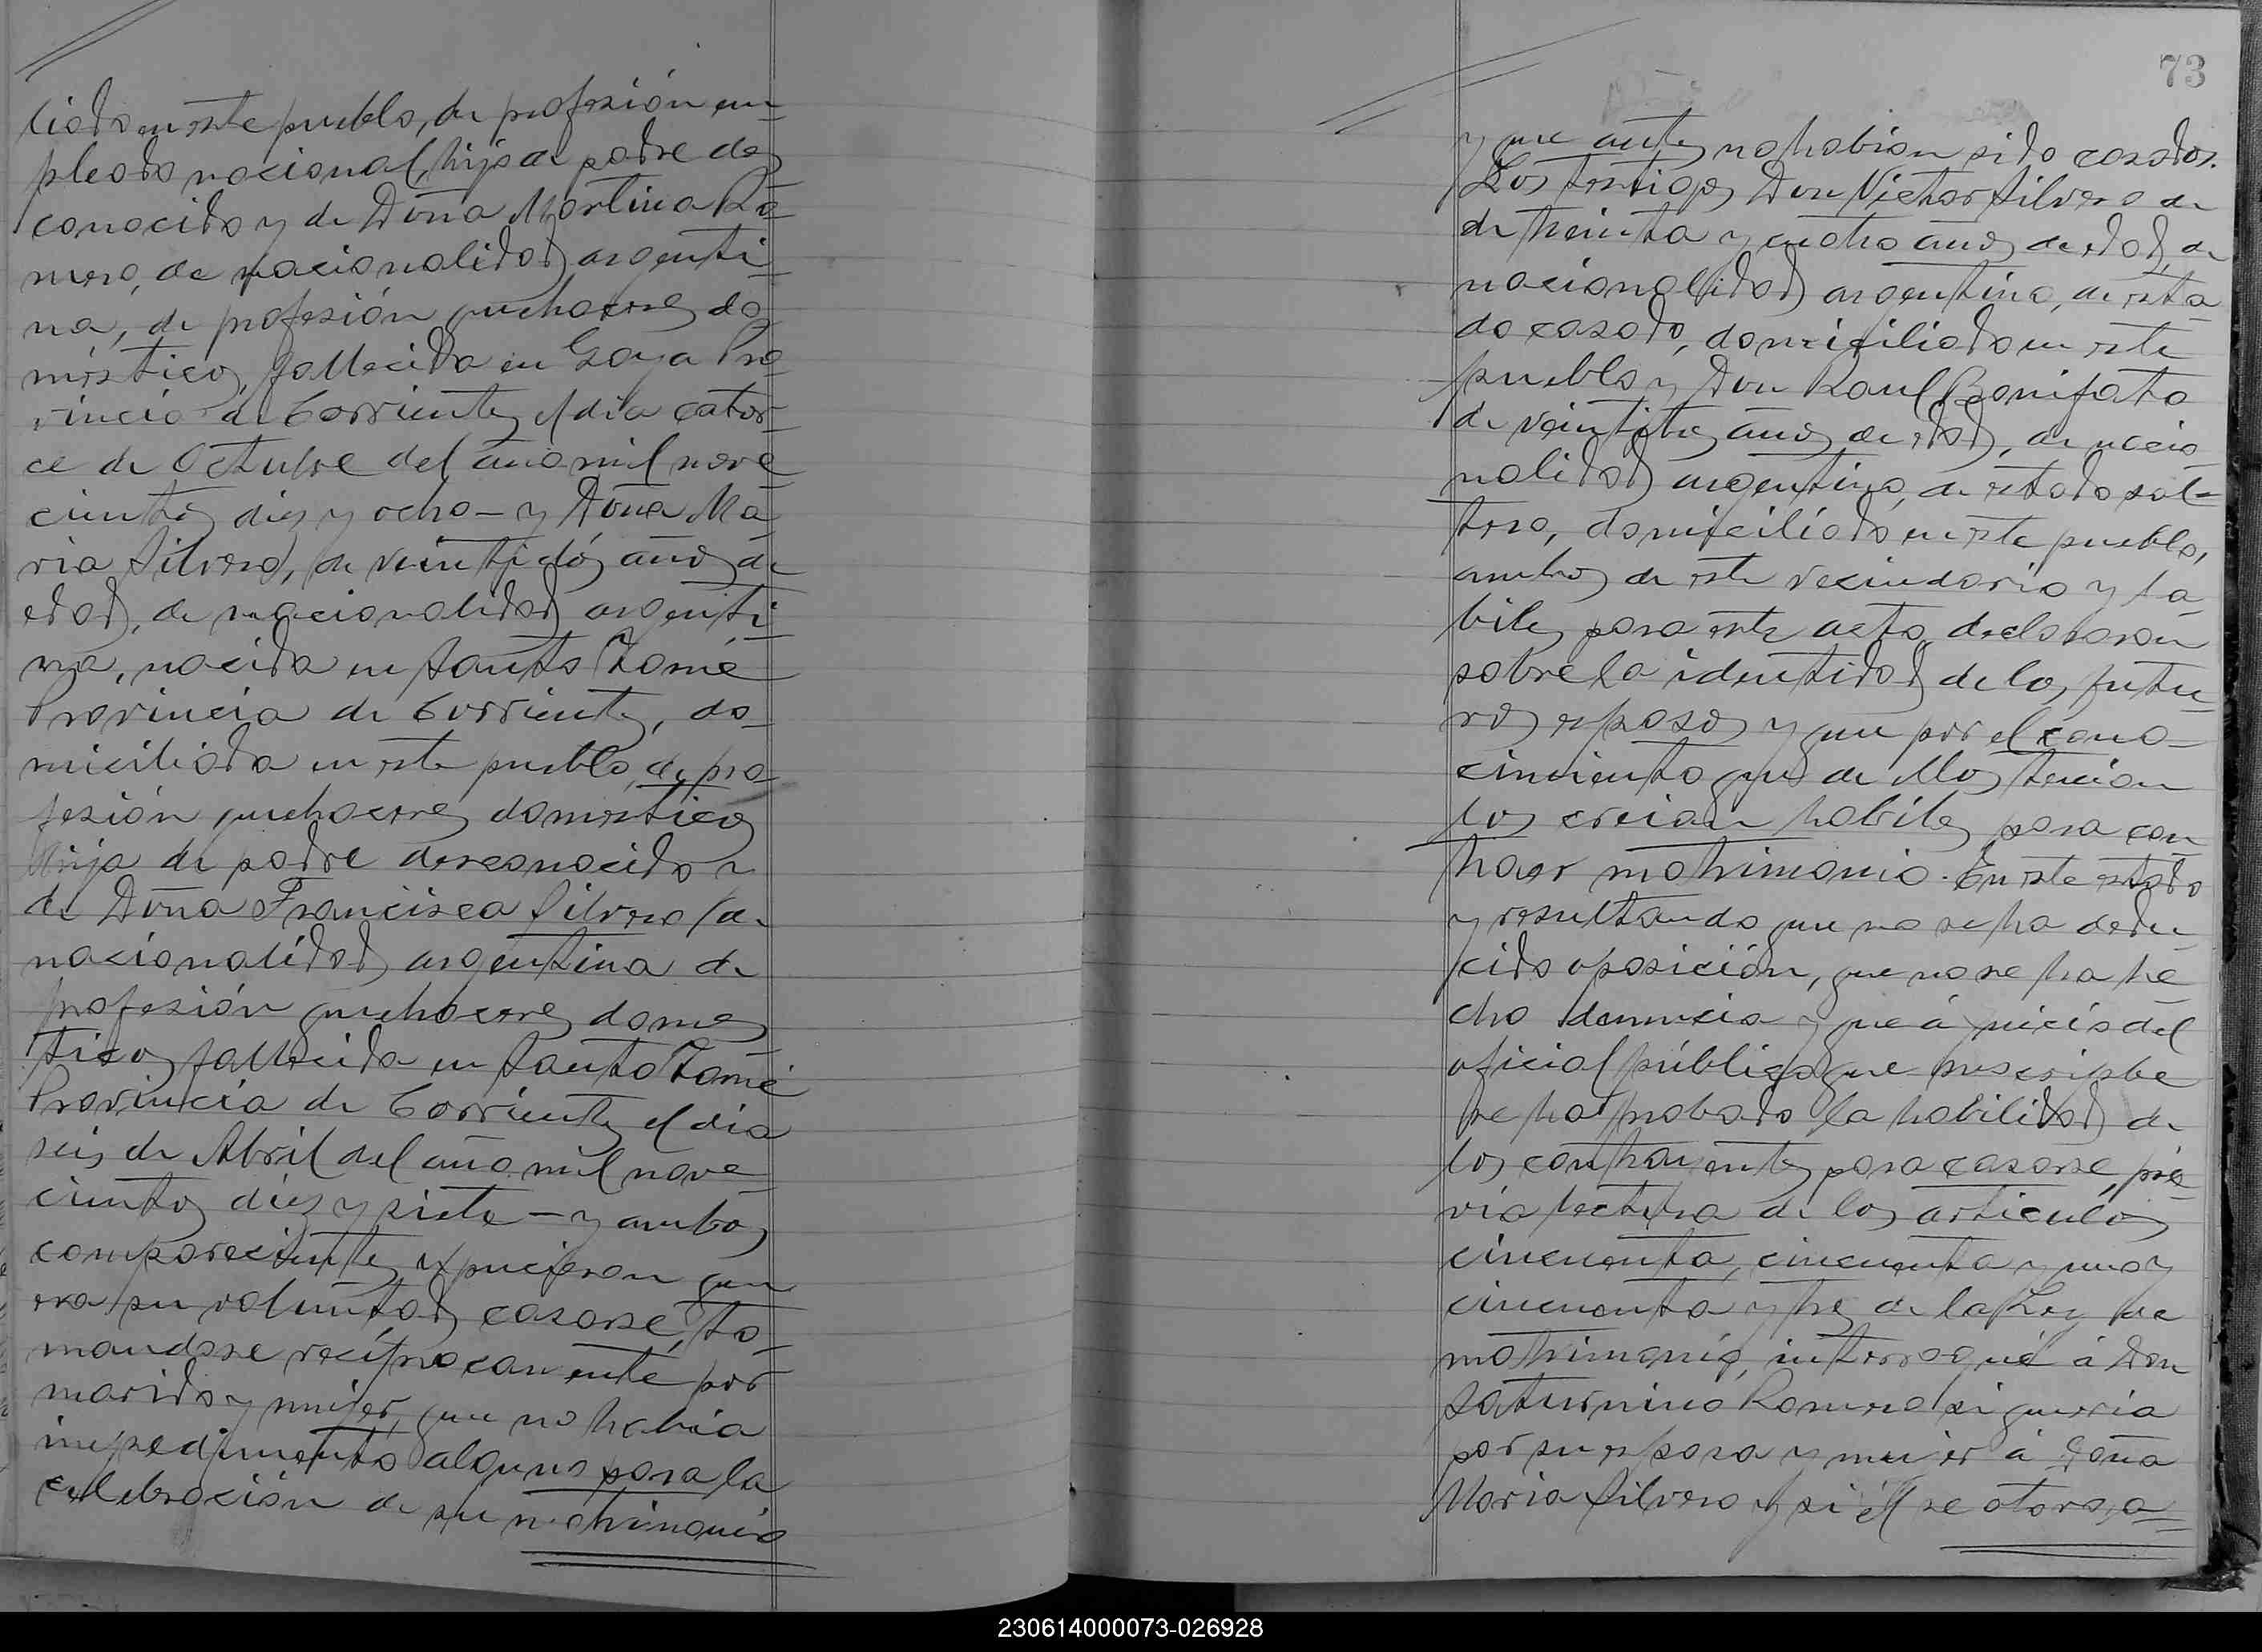 ciado en este pueblo, de profesión em-
pleado nacional, hijo de padre des
conocido y de Doña Martina Ro-
mero, de nacionalidad argenti-
na, de profesión quehaceres do-
mésticos, fallecida en Goya Pro-
vincia de Corrientes el dia cator-
ce de Octubre del año mil nove
cientos diez y ocho - y Doña Ma-
ria Silvero, de veintidós años de
edad, de nacionalidad argenti-
na, nacida en Santo Tomé
Provincia de Corrientes, do-
miciliada en este pueblo, de pro-
fesión quehaceres domesticos
hija de padre desconocido y
de Doña Francisca Silvero, de
nacionalidad argentina de
profesión quehaceres domes
ticos fallecida en Santo Tomé
Provincia de Corrientes el dia
seis de Abril del año mil nove-
cientos diez y siete - y ambos
comparecientes expusieron que
era su voluntad casarse, to-
mandose reciprocamente por
marido y mujer, que no habia
impedimento alguno para la
celebración de su matrimonio
73
y que antes no habian sido casados.
Los testigos Don Victor Silvero de
de treinta y ocho años de edad, de
nacionalidad argentino, de esta-
do casado, domiciliado en este
pueblo y Don Raul Bonifato
de veintitres años de edad, de nacio-
nalidad argentino, de estado sol-
tero, domiciliado en este pueblo,
ambos de este vecindario y ha-
biles para este acto, declararon
sobre la identidad de los, futu-
ros esposos y que por el cono-
cimiento que de ellos tenian
los creian habiles para con-
traer matrimonio. En este estado
y resultando que no se ha dedu-
cido oposición, que no se ha he-
cho denuncia y que á juicio del
oficial público que suscribe
se ha probado la habilidad de
los contrayentes para casarse, pre-
via lectura de los articulos
cincuenta, cincuenta y uno y
cincuenta y tres de la Ley de
matrimonio, interrogué á Don
Saturnino Romero si queria
por su esposa y mujer á Doña
Maria Silvero y si él se otorga
230614000073-026928